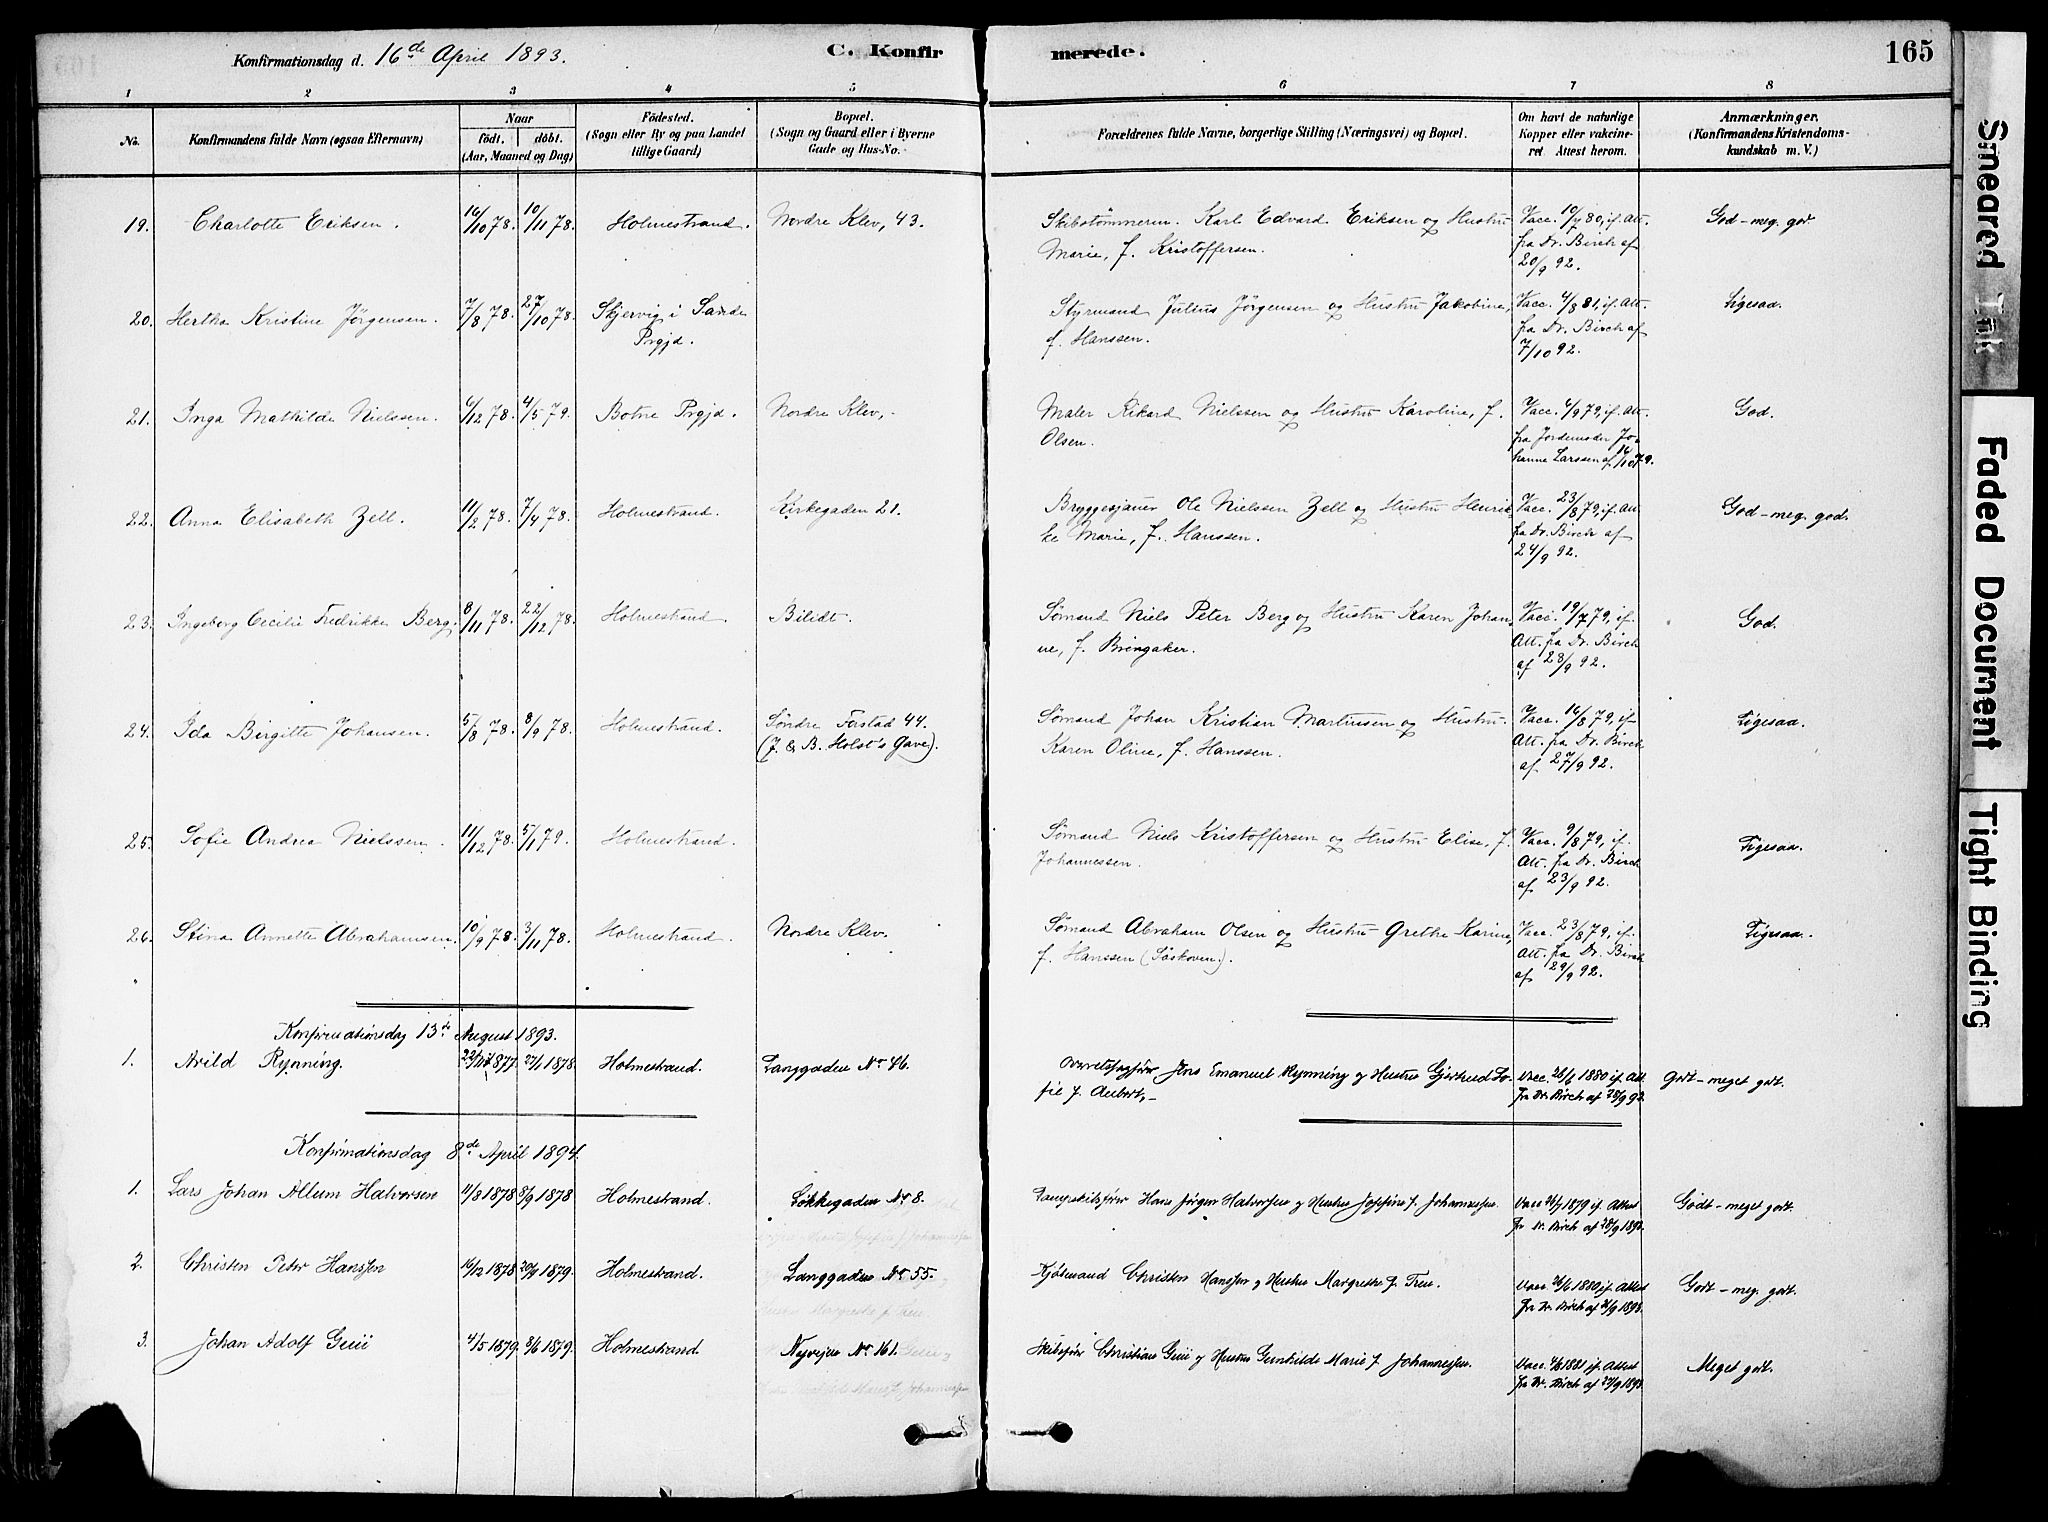 Konfirmationsdag d. 16de April 1893.
C. Konfirmerede.
165
1 2 3 4 5 6 7 8
No.
Konfirmandens fulde Navn (ogsaa Efternavn)
Naar
födt. döbt.
(Aar, Maaned og Dag)
Födested.
(Sogn eller By og paa Landet
tillige Gaard)
Bopæl.
(Sogn og Gaard eller i Byerne
Gade og Hus-No.
Forældrenes fulde Navne, borgerlige Stilling (Næringsvei) og Bopæl.
Om havt de naturlige
Kopper eller vakcine-
ret Attest herom.
Anmærkninger.
(Konfirmandens Kristendoms-
kundskab m. V.)
19. Charlotte Eriksen. 16/10 78. 10/11 78. Holmestrand. Nordre Klev, 43. Skibstömmerm. Karl Edvard Eriksen og Hustru Vacc. 10/7 80, if. Att. God - meg. god
Marie, f. Kristoffersen. fra Dr. Birch af
20/9 92.
20. Hertha Kristine Jörgensen. 7/8 78. 27/10 78. Skjervig i Sande Styrmand Julius Jörgensen og Hustru Jakobine, Vacc. 4/8 81, if. Att. Ligesaa.
Prgjd. f. Hanssen. fra Dr. Birch af
7/10 92.
21. Inga Mathilde Nielssen. 6/12 78. 4/5 79. Botne Prgjd. Nordre Klev,- Maler Rikard Nielssen og Hustru Karoline, f. Vacc. 4/9 79, if. Att. God.
Olsen. fra Jordemoder Jo-
hanne Larssen af 16/10 79.
22. Anna Elisabeth Zell. 11/2 78. 7/4 78. Holmestrand. Kirkegaden 21. Bryggesjauer Ole Nielssen Zell og Hustru Henrik- Vacc. 23/8 79, if. Att God - meg. god.
ke Marie, f. Hanssen. fra Dr. Birch af
24/9 92.
23. Ingeborg Cecilie Fredrikke Berg. 8/11 78. 22/12 78. Holmestrand Bilidt. Sömand Niels Peter Berg og Hustru Karen Johan- Vacc. 19/7 79, if. God.
ne, f. Bringaker. Att. fra Dr. Birch
af 28/9 92.
24. Ida Birgitte Johansen. 5/8 78. 8/9 78. Holmestrand. Söndre Forstad 44. Sömand Johan Kristian Martinsen og Hustru Vacc. 16/8 79, if. Ligesaa.
(J. & B. Holst's Gave). Karen Oline, f. Hanssen. Att. fra Dr. Birch
af 27/9 92.
25. Sofie Andrea Nielssen. 11/12 78. 5/1 79. Holmestrand. Sömand Niels Kristoffersen og Hustru Elise, f. Vacc. 9/8 79, if. Ligesaa.
Johannessen. Att. fra Dr. Birch
af 23/9 92.
26. Stina Annette Abrahamsen. 10/9 78. 3/11 78. Holmestrand. Nordre Klev. Sömand Abraham Olsen og Hustru Grethe Karine, Vacc. 23/8 79, if. Ligesaa.
f. Hanssen (Söskoven.). Att. fra Dr. Birch
af 29/9 92.
Konfirmationsdag 13de August 1893.
1. Arild Rynning. 1877. 27/1 1878. Holmestrand. Langgaden No 46. Jens Emanuel Rynning og Hustru Gjertrud So- Vacc. 1880 if. Att. Godt - meget godt.
fie f. Aubert,- fra Dr. Birch af 28/9 92.
Konfirmationsdag 8de April 1894.
1. Lars Johan Allum Halvorsen 11/8 1878 8/9 1878 Holmestrand. Løkkegaden No 8. Hans Jørgen Halvorsen og Hustru Josefine f. Johannessen. Vacc. 1879 if. Attest Godt - meget godt.
fra Dr. Birch af 1893.
2. Christen Peter Hanssen 1878 1879. Holmestrand. Langgaden No 55. Kjøbmand Christen Hanssen og Hustru Margrethe f. Treu. Vacc. 1880 if. Attest Godt - meg. godt.
fra Dr. Birch af 1893.
3. Johan Adolf Geui 4/5 1879. 8/6 1879. Holmestrand. Nyvejen No 161. Skibsfører Christian Geui og Hustru Gunhilde Marie f. Johannessen. Vacc. 1881 if. Attest Meget godt.
fra Dr. Birch af 1893.
Smeared Ink
Faded Document
Tight Binding